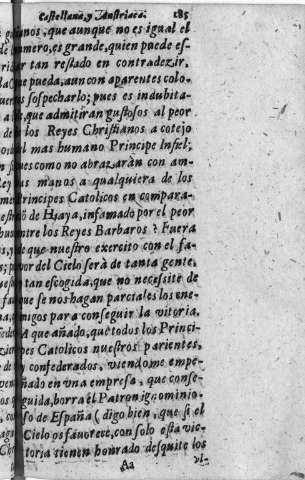 Castellana, y Austriaca. 185
gianos, que aunque no es igual el
numero, es grande, quien puede es-
tar tan restado en contradezir,
que pueda, aun con aparentes colo-
sospecharlo; pues es indubita-
que, admitiran gustosos al peor
los Reyes Christianos a cotejo
el mas humano Principe Infiel;
pues como no abrazaràn con am-
as manos a qualquiera de los
Principes Catolicos en compara-
de Hiaya, infamado por el peor
entre los Reyes Barbaros? Fuera
de que nuestro exercito con el fa-
vor del Cielo serà de tanta gente,
tan escogida, que no necesite de
que se nos hagan parciales los ene-
migos para conseguir la vitoria.
A que añado, que todos los Princi-
pes Catolicos nuestros parientes,
y confederados, viendome empe-
ñado en vna empresa, que conse-
guida, borra èl Patron ignominio-
so de España (digo bien, que si el
Cielo os fauorece, con solo esta vic-
toria tienen honrado desquite los
Aa vl-